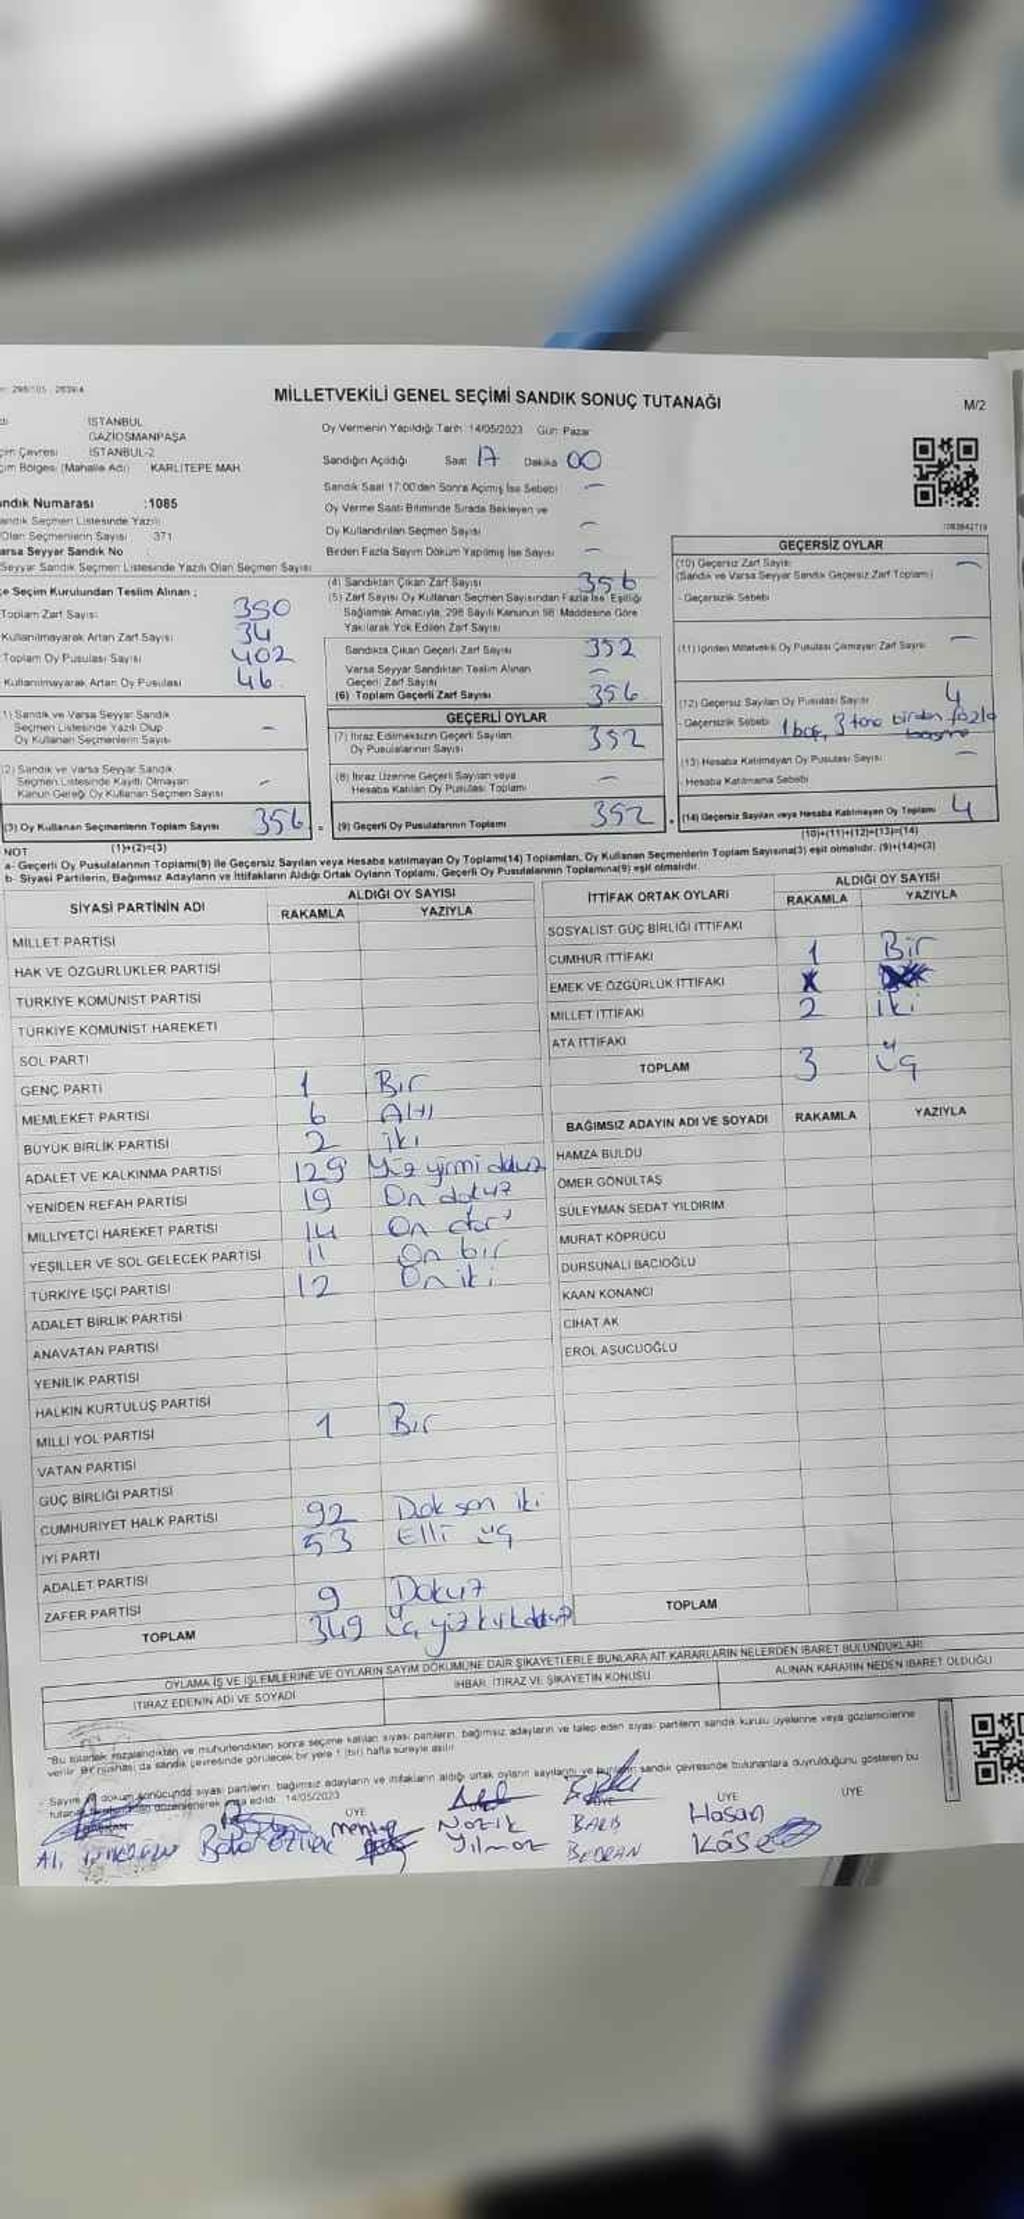 MİLLETVEKİLİ GENEL SEÇİMİ SANDIK SONUÇ TUTANAĞI
M/2
İSTANBUL
GAZİOSMANPAŞA
İSTANBUL-2
(Mahalle Adı) KARLITEPE MAH.
Sandık Numarası :1085
Sandık Seçmen Listesinde Yazılı
Olan Seçmenlerin Sayısı 371
Varsa Seyyar Sandık No
Seyyar Sandık Seçmen Listesinde Yazılı Olan Seçmen Sayısı
Oy Vermenin Yapıldığı Tarih: 14/05/2023 Gün: Pazar
Sandığın Açıldığı Saat 17 Dakika 00
Sandık Saat 17:00'den Sonra Açılmış İse Sebebi –
Oy Verme Saati Bitiminde Sırada Bekleyen ve
Oy Kullandırılan Seçmen Sayısı –
Birden Fazla Sayım Döküm Yapılmış İse Sayısı –
İlçe Seçim Kurulundan Teslim Alınan ;
Toplam Zarf Sayısı 390
Kullanılmayarak Artan Zarf Sayısı 34
Toplam Oy Pusulası Sayısı 402
Kullanılmayarak Artan Oy Pusulası 46
(1) Sandık ve Varsa Seyyar Sandık
Seçmen Listesinde Yazılı Olup
Oy Kullanan Seçmenlerin Sayısı –
(2) Sandık ve Varsa Seyyar Sandık
Seçmen Listesinde Kayıtlı Olmayan
Kanun Gereği Oy Kullanan Seçmen Sayısı –
(3) Oy Kullanan Seçmenlerin Toplam Sayısı 356
(1)+(2)=(3)
(4) Sandıktan Çıkan Zarf Sayısı 356
(5) Zarf Sayısı Oy Kullanan Seçmen Sayısından Fazla İse Eşitliği
Sağlamak Amacıyla, 298 Sayılı Kanunun 98. Maddesine Göre
Yakılarak Yok Edilen Zarf Sayısı
Sandıkta Çıkan Geçerli Zarf Sayısı 352
Varsa Seyyar Sandıktan Teslim Alınan
Geçerli Zarf Sayısı –
(6) Toplam Geçerli Zarf Sayısı 356
GEÇERLİ OYLAR
(7) İtiraz Edilmeksizin Geçerli Sayılan
Oy Pusulalarının Sayısı 352
(8) İtiraz Üzerine Geçerli Sayılan veya
Hesaba Katılan Oy Pusulası Toplamı –
(9) Geçerli Oy Pusulalarının Toplamı 352
GEÇERSİZ OYLAR
(10) Geçersiz Zarf Sayısı –
(Sandık ve Varsa Seyyar Sandık Geçersiz Zarf Toplamı)
- Geçersizlik Sebebi
(11) İçinden Milletvekili Oy Pusulası Çıkmayan Zarf Sayısı –
(12) Geçersiz Sayılan Oy Pusulası Sayısı 4
- Geçersizlik Sebebi 1 boş, 3 tane birden fazla
basma
(13) Hesaba Katılmayan Oy Pusulası Sayısı –
- Hesaba Katılmama Sebebi
(14) Geçersiz Sayılan veya Hesaba Katılmayan Oy Toplamı 4
(10)+(11)+(12)+(13)=(14)
NOT
a- Geçerli Oy Pusulalarının Toplamı(9) ile Geçersiz Sayılan veya Hesaba katılmayan Oy Toplamı(14) Toplamları, Oy Kullanan Seçmenlerin Toplam Sayısına(3) eşit olmalıdır. (9)+(14)=(3)
b- Siyasi Partilerin, Bağımsız Adayların ve İttifakların Aldığı Ortak Oyların Toplamı, Geçerli Oy Pusulalarının Toplamına(9) eşit olmalıdır.
SİYASİ PARTİNİN ADI ALDIĞI OY SAYISI
RAKAMLA YAZIYLA
MİLLET PARTİSİ
HAK VE ÖZGÜRLÜKLER PARTİSİ
TÜRKİYE KOMÜNİST PARTİSİ
TÜRKİYE KOMÜNİST HAREKETİ
SOL PARTİ
GENÇ PARTİ 1 Bir
MEMLEKET PARTİSİ 6 Altı
BÜYÜK BİRLİK PARTİSİ 2 iki
ADALET VE KALKINMA PARTİSİ 129 Yüz yirmi dokuz
YENİDEN REFAH PARTİSİ 19 On dokuz
MİLLİYETÇİ HAREKET PARTİSİ 14 On dört
YEŞİLLER VE SOL GELECEK PARTİSİ 11 On bir
TÜRKİYE İŞÇİ PARTİSİ 12 On iki
ADALET BİRLİK PARTİSİ
ANAVATAN PARTİSİ
YENİLİK PARTİSİ
HALKIN KURTULUŞ PARTİSİ
MİLLİ YOL PARTİSİ 1 Bir
VATAN PARTİSİ
GÜÇ BİRLİĞİ PARTİSİ
CUMHURİYET HALK PARTİSİ 92 Doksan iki
İYİ PARTİ 53 Elli üç
ADALET PARTİSİ
ZAFER PARTİSİ 9 Dokuz
TOPLAM 349 Üç yüz kırk dokuz
İTTİFAK ORTAK OYLARI ALDIĞI OY SAYISI
RAKAMLA YAZIYLA
SOSYALİST GÜÇ BİRLİĞİ İTTİFAKI
CUMHUR İTTİFAKI 1 Bir
EMEK VE ÖZGÜRLÜK İTTİFAKI
MİLLET İTTİFAKI 2 iki
ATA İTTİFAKI
TOPLAM 3 üç
BAĞIMSIZ ADAYIN ADI VE SOYADI RAKAMLA YAZIYLA
HAMZA BULDU
ÖMER GÖNÜLTAŞ
SÜLEYMAN SEDAT YILDIRIM
MURAT KÖPRÜCÜ
DURSUNALİ BACIOĞLU
KAAN KONANCI
CİHAT AK
EROL AŞUCUOĞLU
TOPLAM
OYLAMA İŞ VE İŞLEMLERİNE VE OYLARIN SAYIM DÖKÜMÜNE DAİR ŞİKAYETLERLE BUNLARA AİT KARARLARIN NELERDEN İBARET BULUNDUKLARI
İTİRAZ EDENİN ADI VE SOYADI İHBAR, İTİRAZ VE ŞİKAYETİN KONUSU ALINAN KARARIN NEDEN İBARET OLDUĞU
"Bu tutanak imzalandıktan ve mühürlendikten sonra seçime katılan siyasi partilerin, bağımsız adayların ve talep eden siyasi partilerin sandık kurulu üyelerine veya gözlemcilerine
verilir. Bir nüshası da sandık çevresinde görülecek bir yere 1 (bir) hafta süreyle asılır.
Sayım döküm sonucunda siyasi partilerin, bağımsız adayların ve ittifakların aldığı ortak oyların sayılarını ve bunların sandık çevresinde bulunanlara duyrulduğunu gösteren bu
tutanak düzenlenerek imza edildi. 14/05/2023
BAŞKAN ÜYE ÜYE ÜYE ÜYE
Nazik Yılmaz
BARIS BEDRAN
Hasan Köse